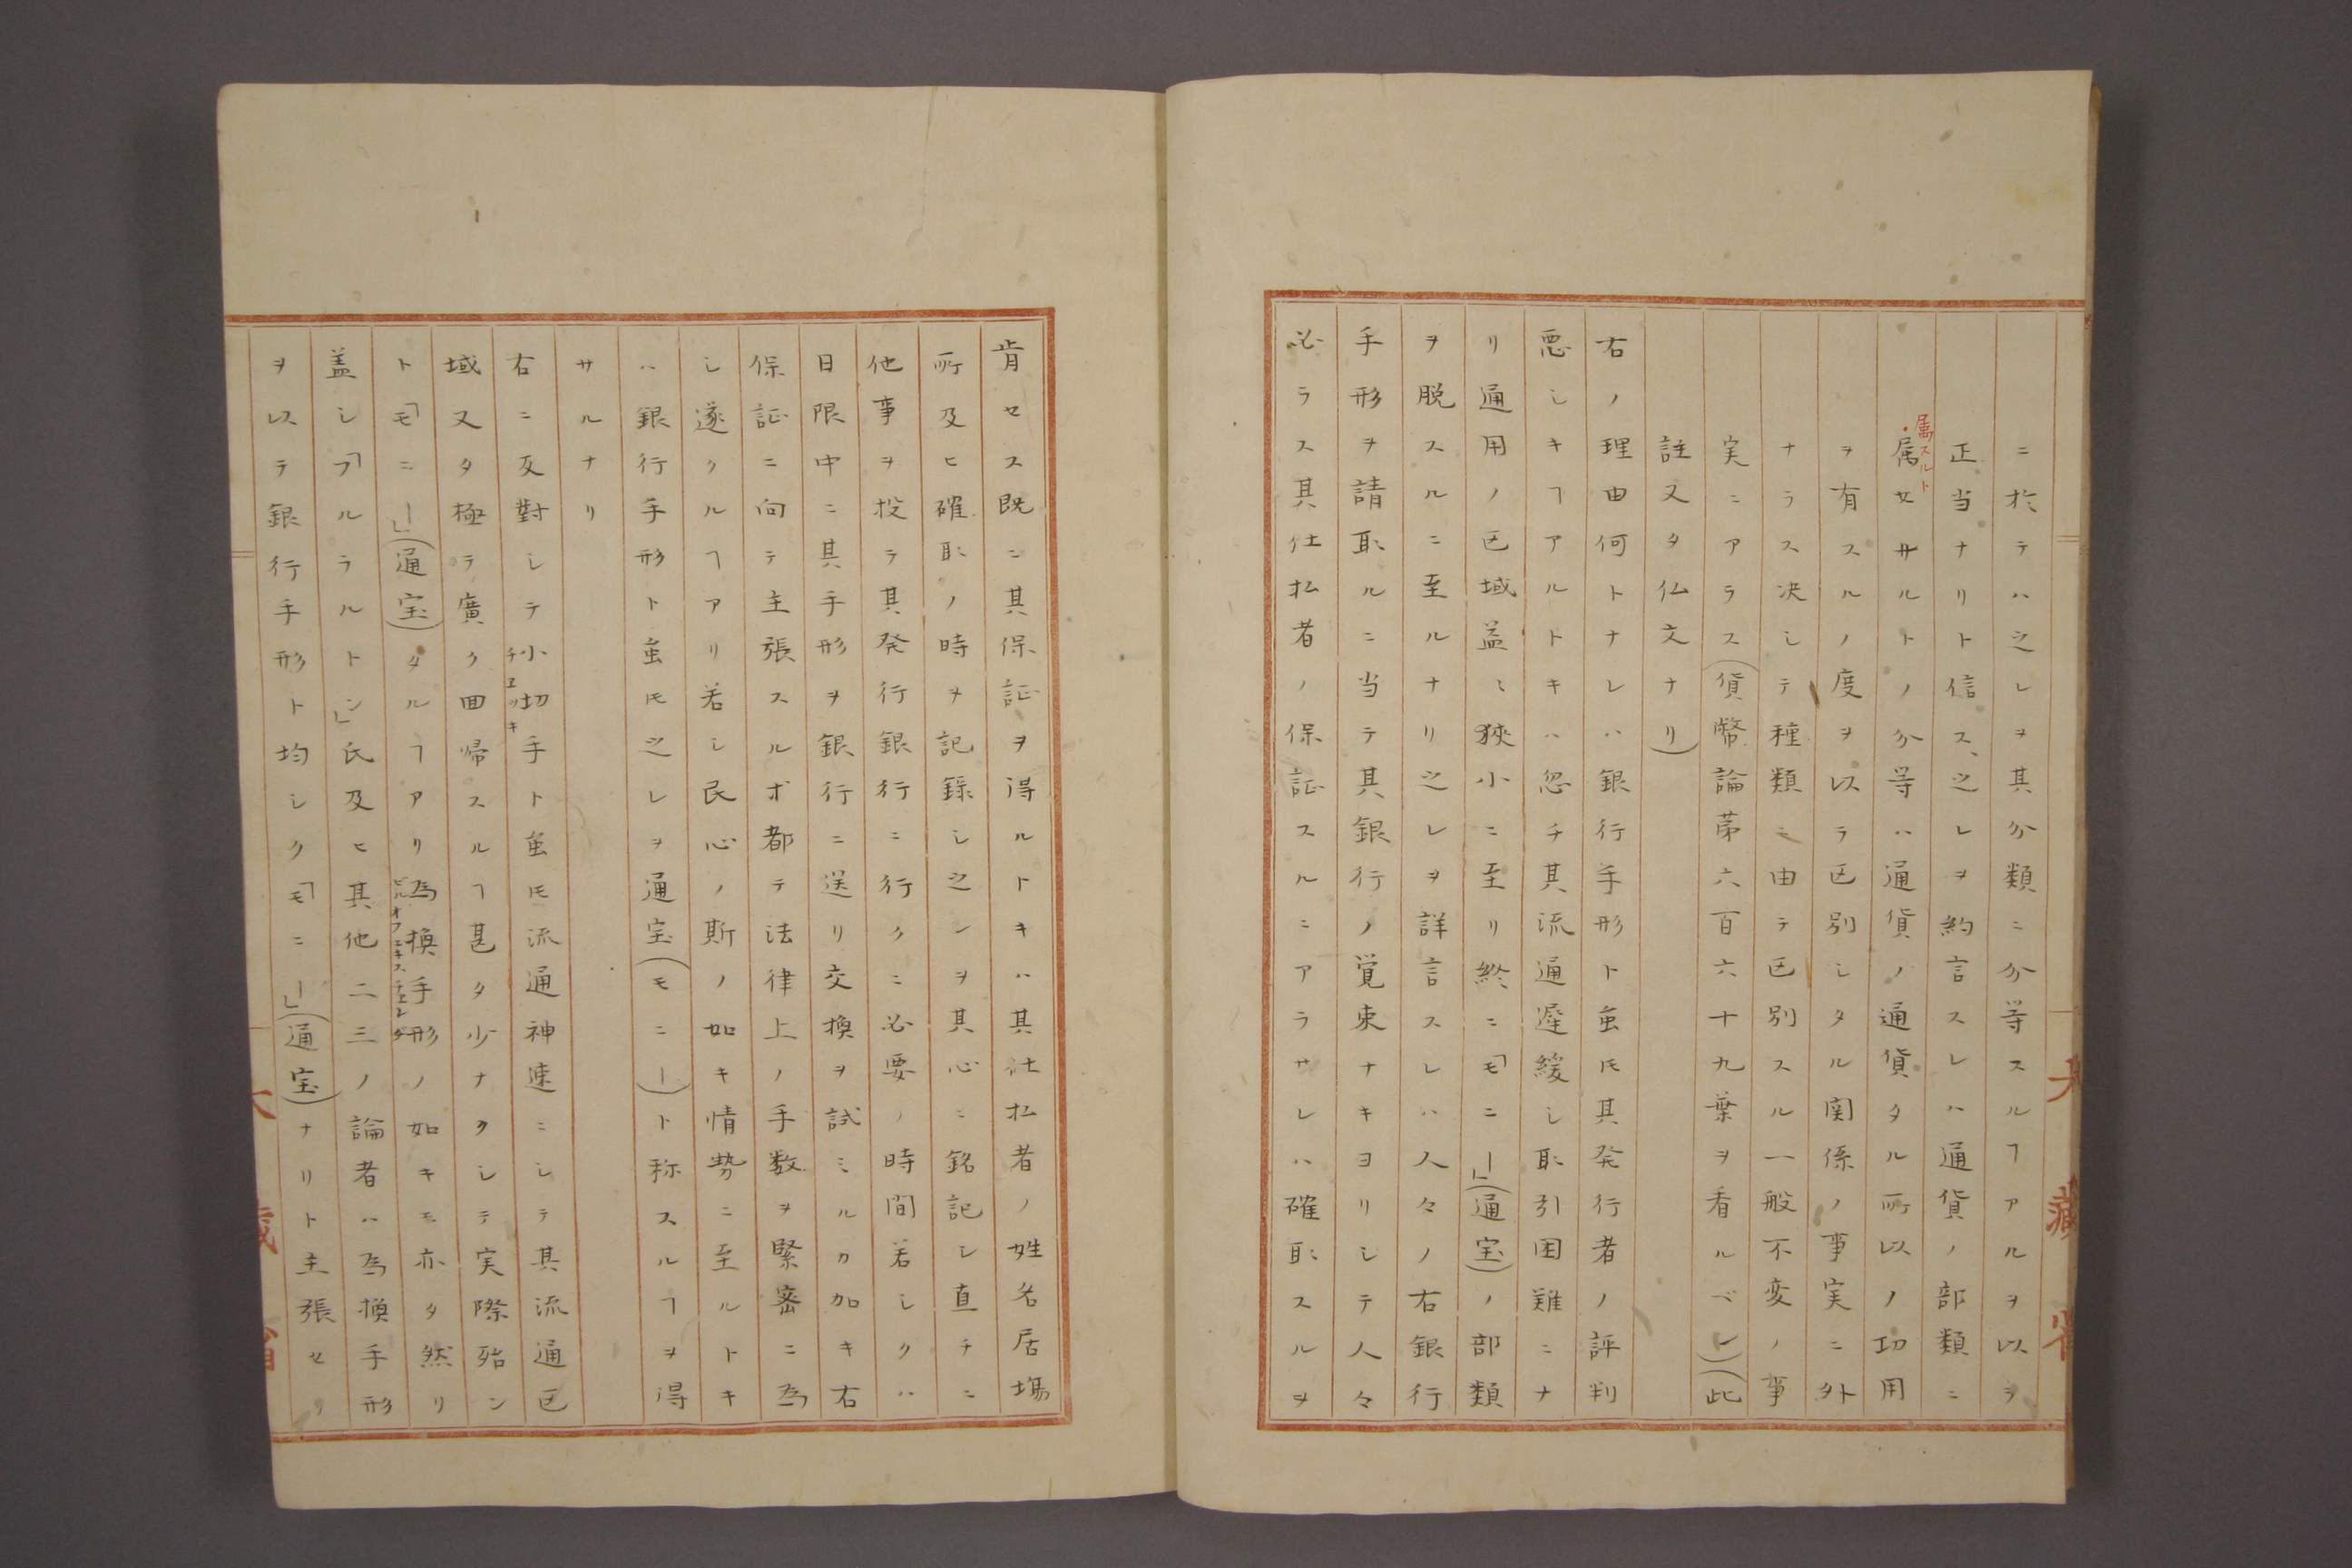 ニ於テハ之レヲ其分類ニ分等スルヿアルヲ以ヲ
正当ナリト信ス、之レヲ約言スレハ通貨ノ部類ニ
属スルト
属セサルトノ分等ハ通貨ノ通貨タル所以ノ功用
ヲ有スルノ度ヲ以テ区別シタル関係ノ事実ニ外
ナラス决シテ種類ニ由テ区別スル一般不変ノ事
実ニアラス(貨幣論苐六百六十九葉ヲ看ルベシ)(此
註又タ仏文ナリ)
右ノ理由何トナレハ銀行手形ト虽𪜈其発行者ノ評判
悪シキヿアルトキハ忽チ其流通遅緩シ取引困難ニナ
リ通用ノ区域益ミ狹小ニ至リ終ニ「モニー」(通宝)ノ部類
ヲ脱スルニ至ルナリ之レヲ詳言スレハ人々ノ右銀行
手形ヲ請取ルニ当テ其銀行ノ覚束ナキヨリシテ人々
必ラス其仕払者ノ保証スルニアラサレハ確取スルヲ
肯セス既ニ其保証ヲ得ルトキハ其仕払者ノ姓名居場
所及ヒ確取ノ時ヲ記録シ之レヲ其心ニ銘記シ直チニ
他事ヲ投テ其発行銀行ニ行クニ必要ノ時間若シクハ
日限中ニ其手形ヲ銀行ニ送リ交換ヲ試ミルカ如キ右
保証ニ向テ主張スルオ都テ法律上ノ手数ヲ緊密ニ為
シ遂クルヿアリ若シ民心ノ斯ノ如キ情勢ニ至ルトキ
ハ銀行手形ト虽𪜈之レヲ通宝(モニー)ト称スルヿヲ得
サルナリ
右ニ反對シテ小切手ト虽𪜈流通神速ニシテ其流通区
チヱツキ
域又タ極テ廣ク回帰スルヿ甚タ少ナクシテ実際殆ン
ト「モニー」(通宝)タルヿアリ為換手形ノ如キモ亦タ然リ
ビルオフエキスチエンヂ
盖シ「フルラルトン」氏及ヒ其他二三ノ論者ハ為換手形
ヲ以テ銀行手形ト均シク「モニー」(通宝)ナリト主張セリ
大藏省